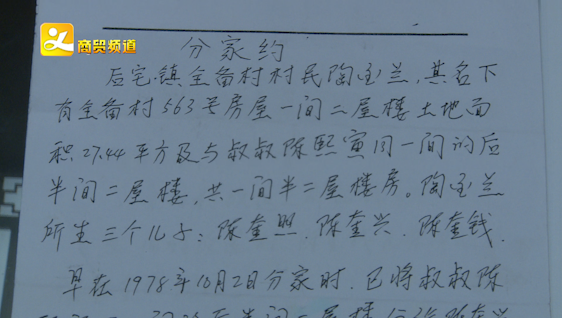 商贸频道
分家约
后宅镇全备村村民陶玉兰,其名下
有全备村563号房屋一间二层楼土地面
积27.44平方及与叔叔陈熙寅同一间的后
半间二层楼,共一间半二层楼房。陶玉兰
所生三个儿子:陈奎照.陈奎兴.陈奎钱.
早在1978年10月2日分家时.已将叔叔陈